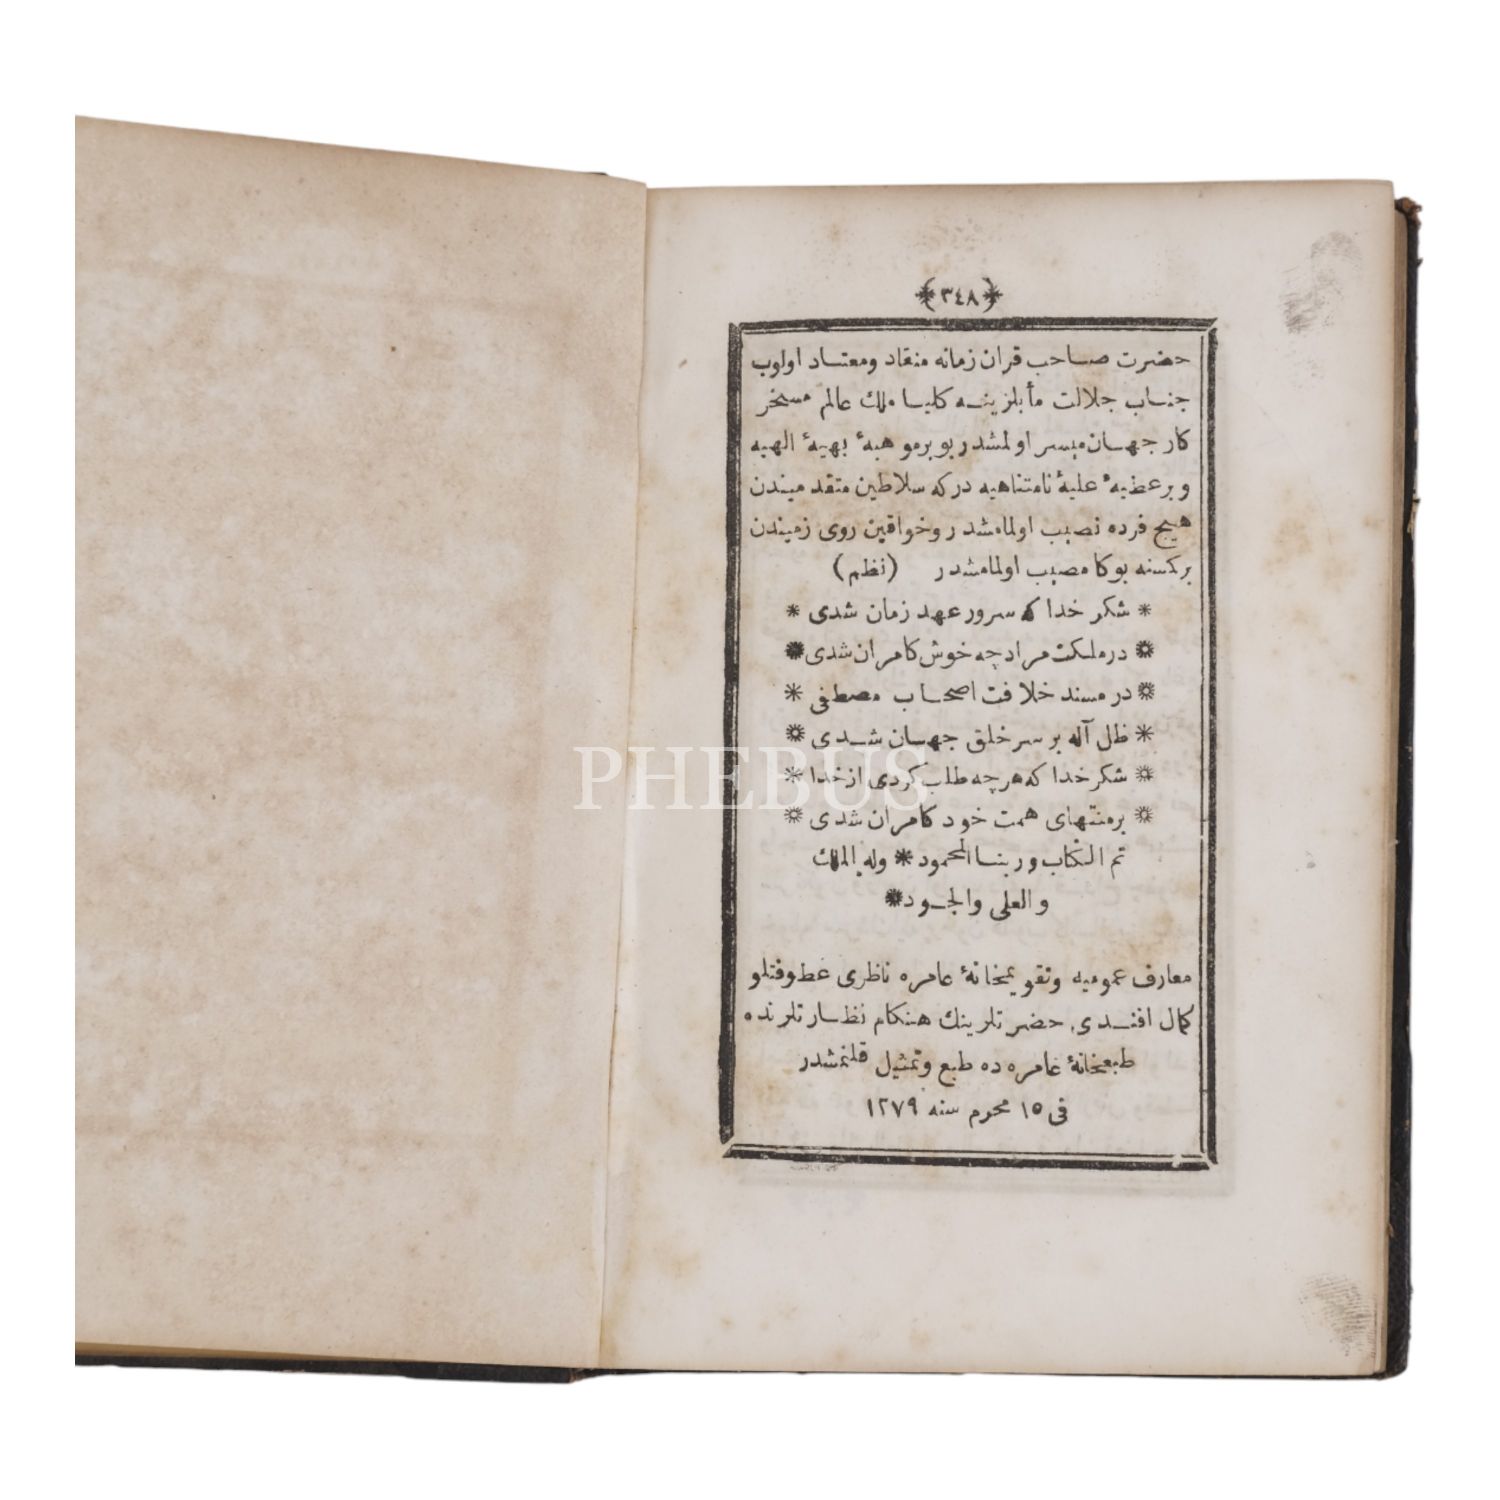 ﴿٣٤٨﴾
حضرت صاحب قران زمانه منقاد و معتاد اولوب
جناب جلالت مأبلرينه كليا ملك عالم مسخر
كار جهان ميسر اولمشدر بو بر موهبۀ بهيۀ الهيه
و بر عطيۀ عليۀ نامتناهيه در كه سلاطين متقدميندن
هيچ فرده نصيب اولمامشدر و خواقين روى زميندن
بركسنه بوكا مصيب اولمامشدر (نظم)
* شكر خدا كه سرور عهد زمان شدى *
* در مملكت مراد چه خوش كامران شدى *
* در مسند خلافت اصحاب مصطفى *
* ظل آله بر سر خلق جهان شدى *
* شكر خدا كه هر چه طلب كردى از خدا *
* بر منتهاى همت خود كامران شدى *
تم الكتاب وربنا المحمود * وله الملك
والعلى والجود *
معارف عموميه وتقويمخانۀ عامره ناظرى عطوفتلو
كمال افندى حضرتلرينك هنكام نظارتلرنده
طبعخانۀ عامره ده طبع وتمثيل قلنمشدر
فى ١٥ محرم سنه ١٢٧٩
PHEBUS